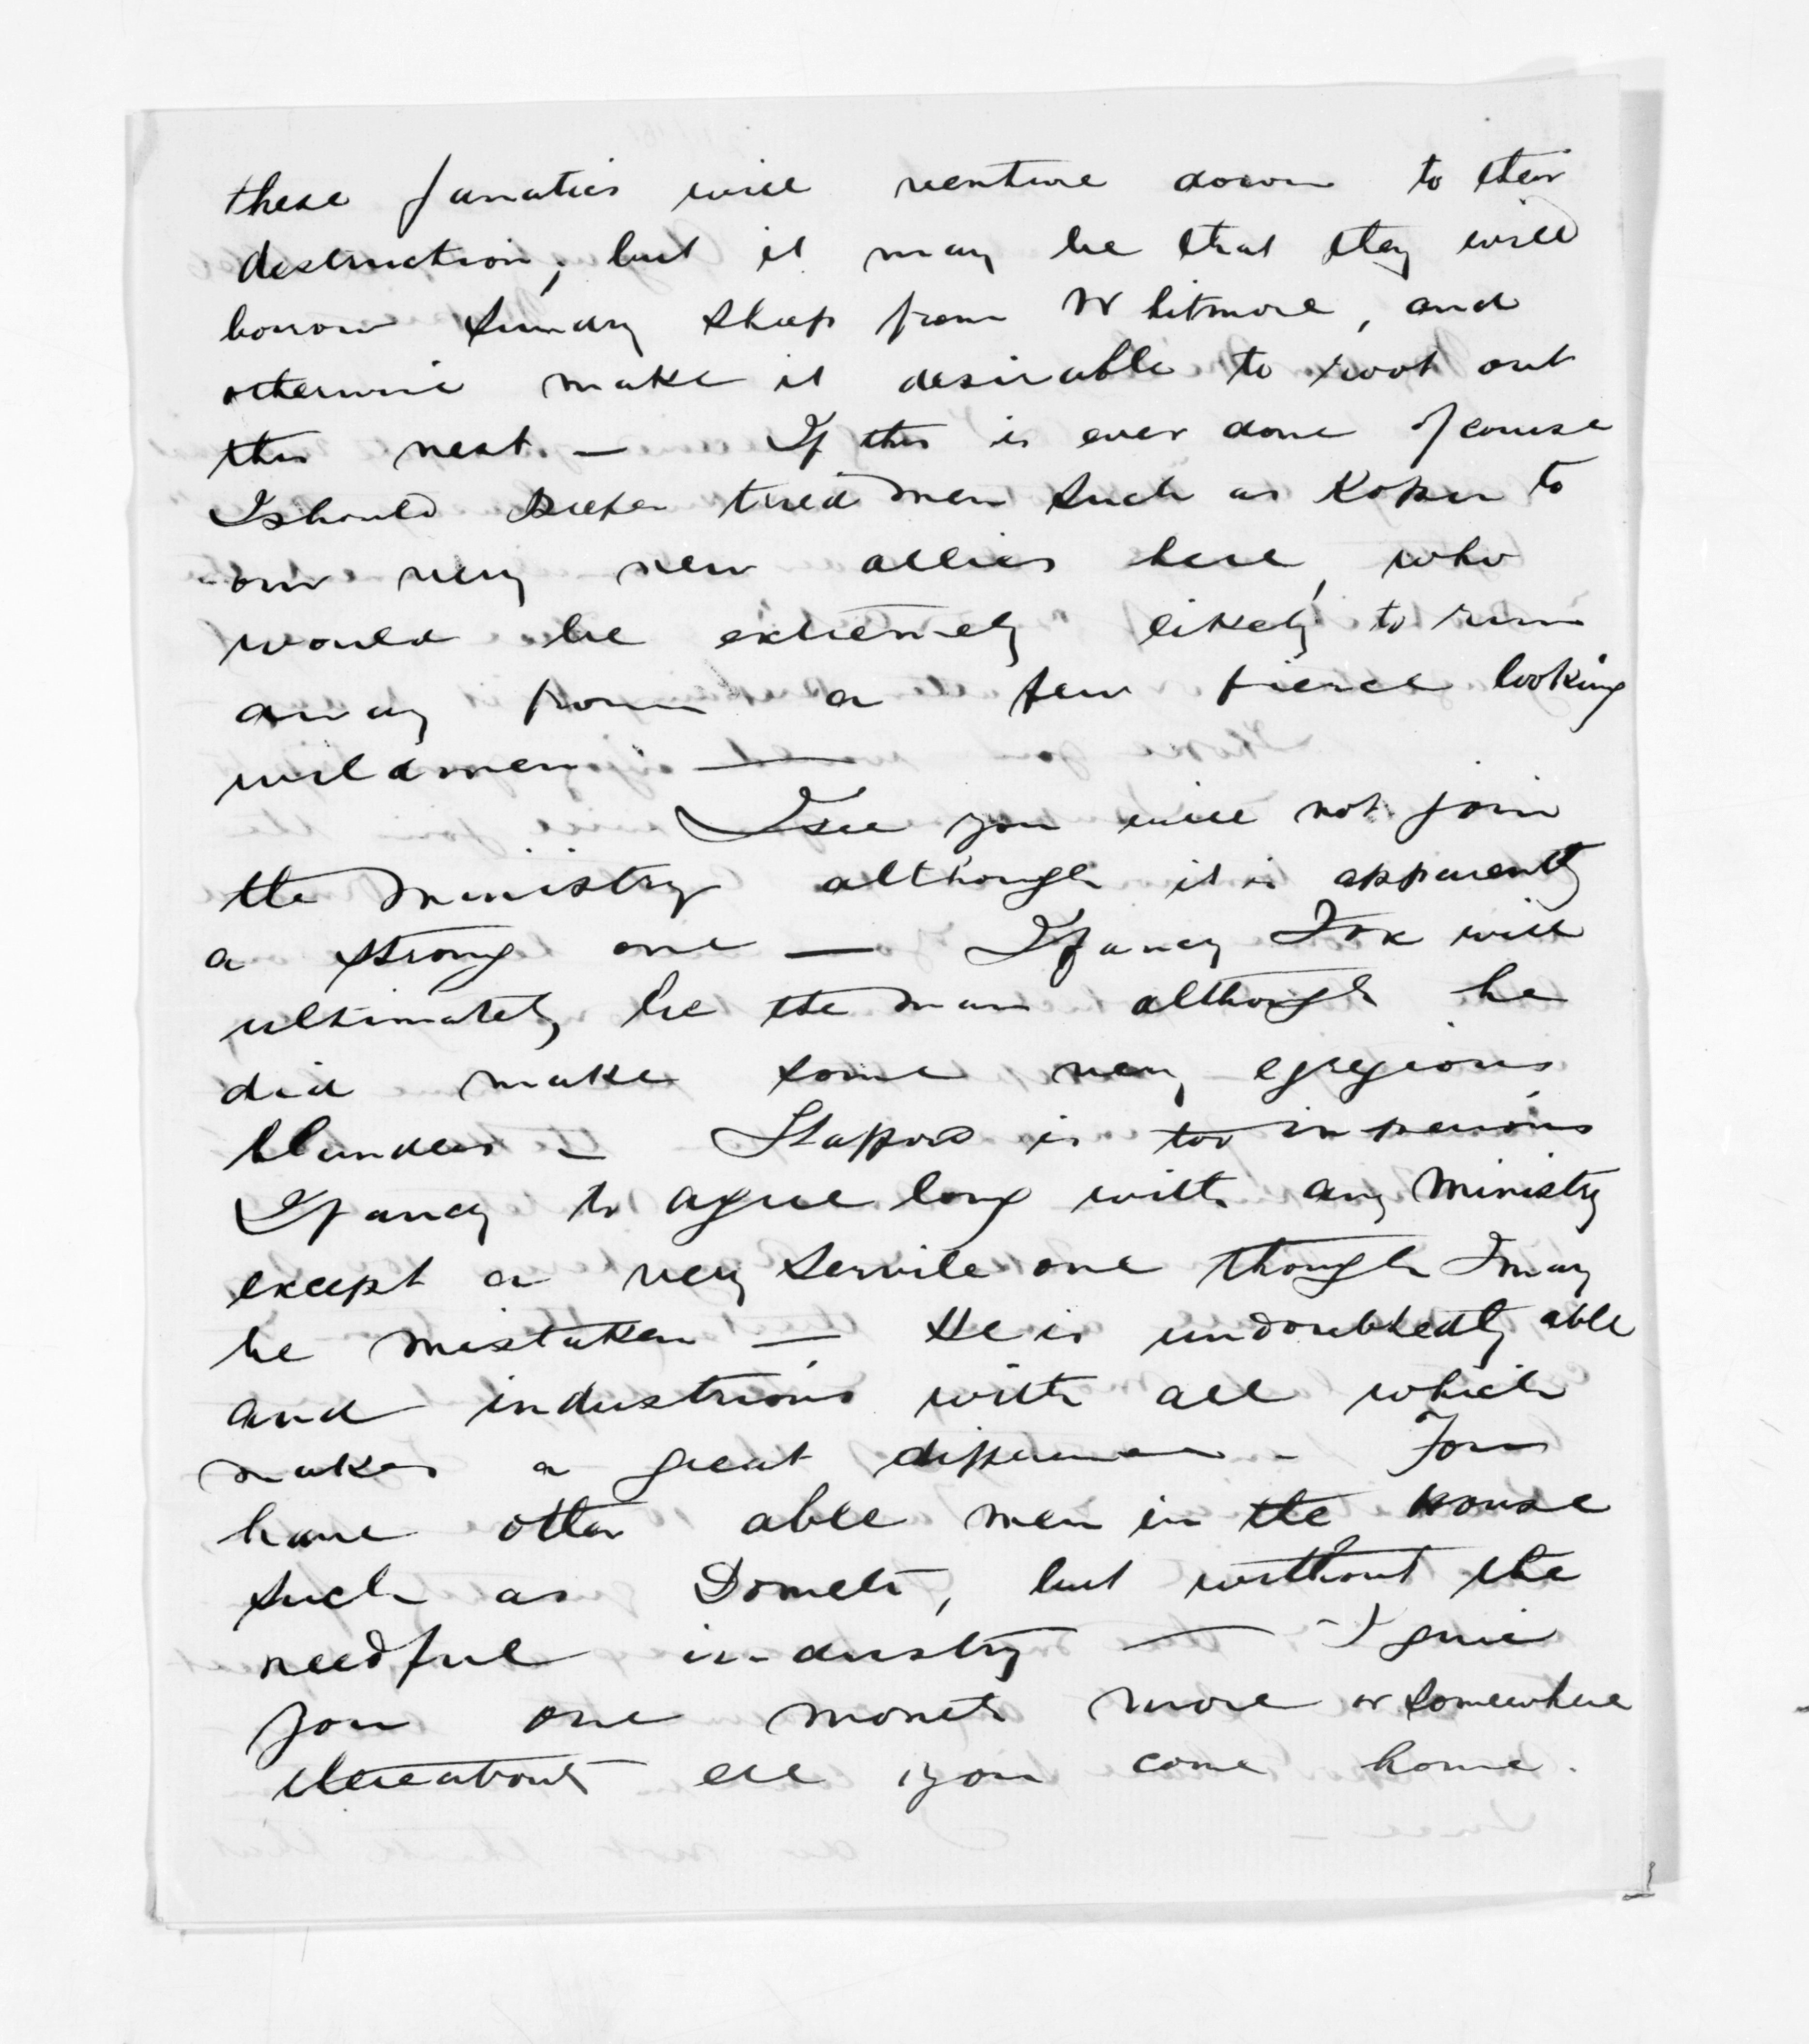 these fanatics will venture down to their
destruction, but it may be that they will
borrow sundry sheep from Whitmore, and
otherwise make it desirable to root out
this nest. — If this is ever done of course
I should prefer tried men such as Kopu to
our very new allies here, who
would be extremely likely to run
away from a few fierce looking
wild men. —
I see you will not join
the Ministry although it is apparently
a strong one — I fancy Fox will
ultimately be the man although he
did make some very egregious
blunders — Stafford is too imperious
I fancy to agree long with any Ministry
except a very servile one though I may
be mistaken — He is undoubtedly able
and industrious with all which
makes a great difference — You
have other able men in the House
such as Domett, but without the
needful industry — I give
you one month more or somewhere
thereabouts ere you come home.